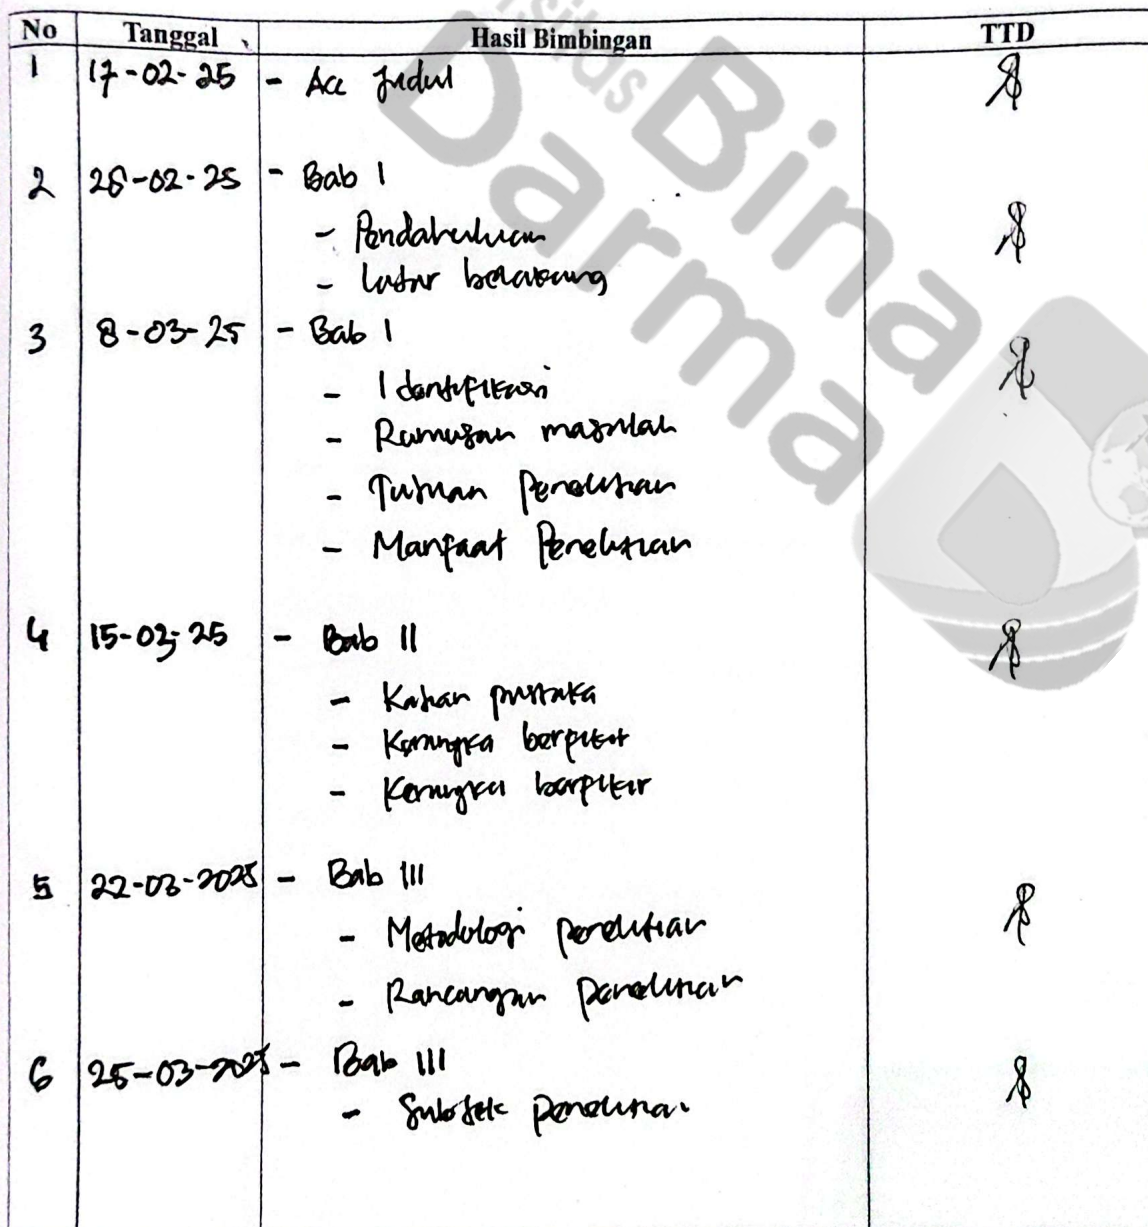 No Tanggal Hasil Bimbingan TTD
1 17-02-25 - Acc Judul
2 26-02-25 - Bab I
- Pendahuluan
- Latar belakang
3 8-03-25 - Bab I
- Identifikasi
- Rumusan masalah
- Tujuan Penelitian
- Manfaat Penelitian
4 15-03-25 - Bab II
- Kajian pustaka
- Kerangka berpikir
- Kerangka berpikir
5 22-03-2025 - Bab III
- Metodologi penelitian
- Rancangan penelitian
6 25-03-2025 - Bab III
- Subjek penelitian
Bina
Darma